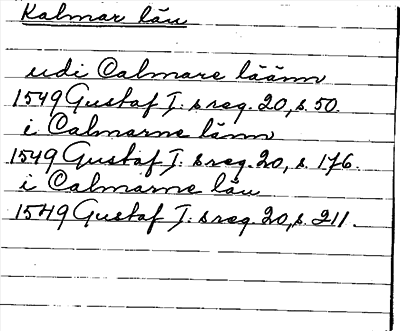 Kalmar län
udi Calmareläänn
1549 Gustaf I: s reg. 20, s. 50.
i Calmarne länn
1549 Gustaf I: s reg. 20, s. 176.
i Calmarne län
1549 Gustaf I: s reg. 20, s. 211.